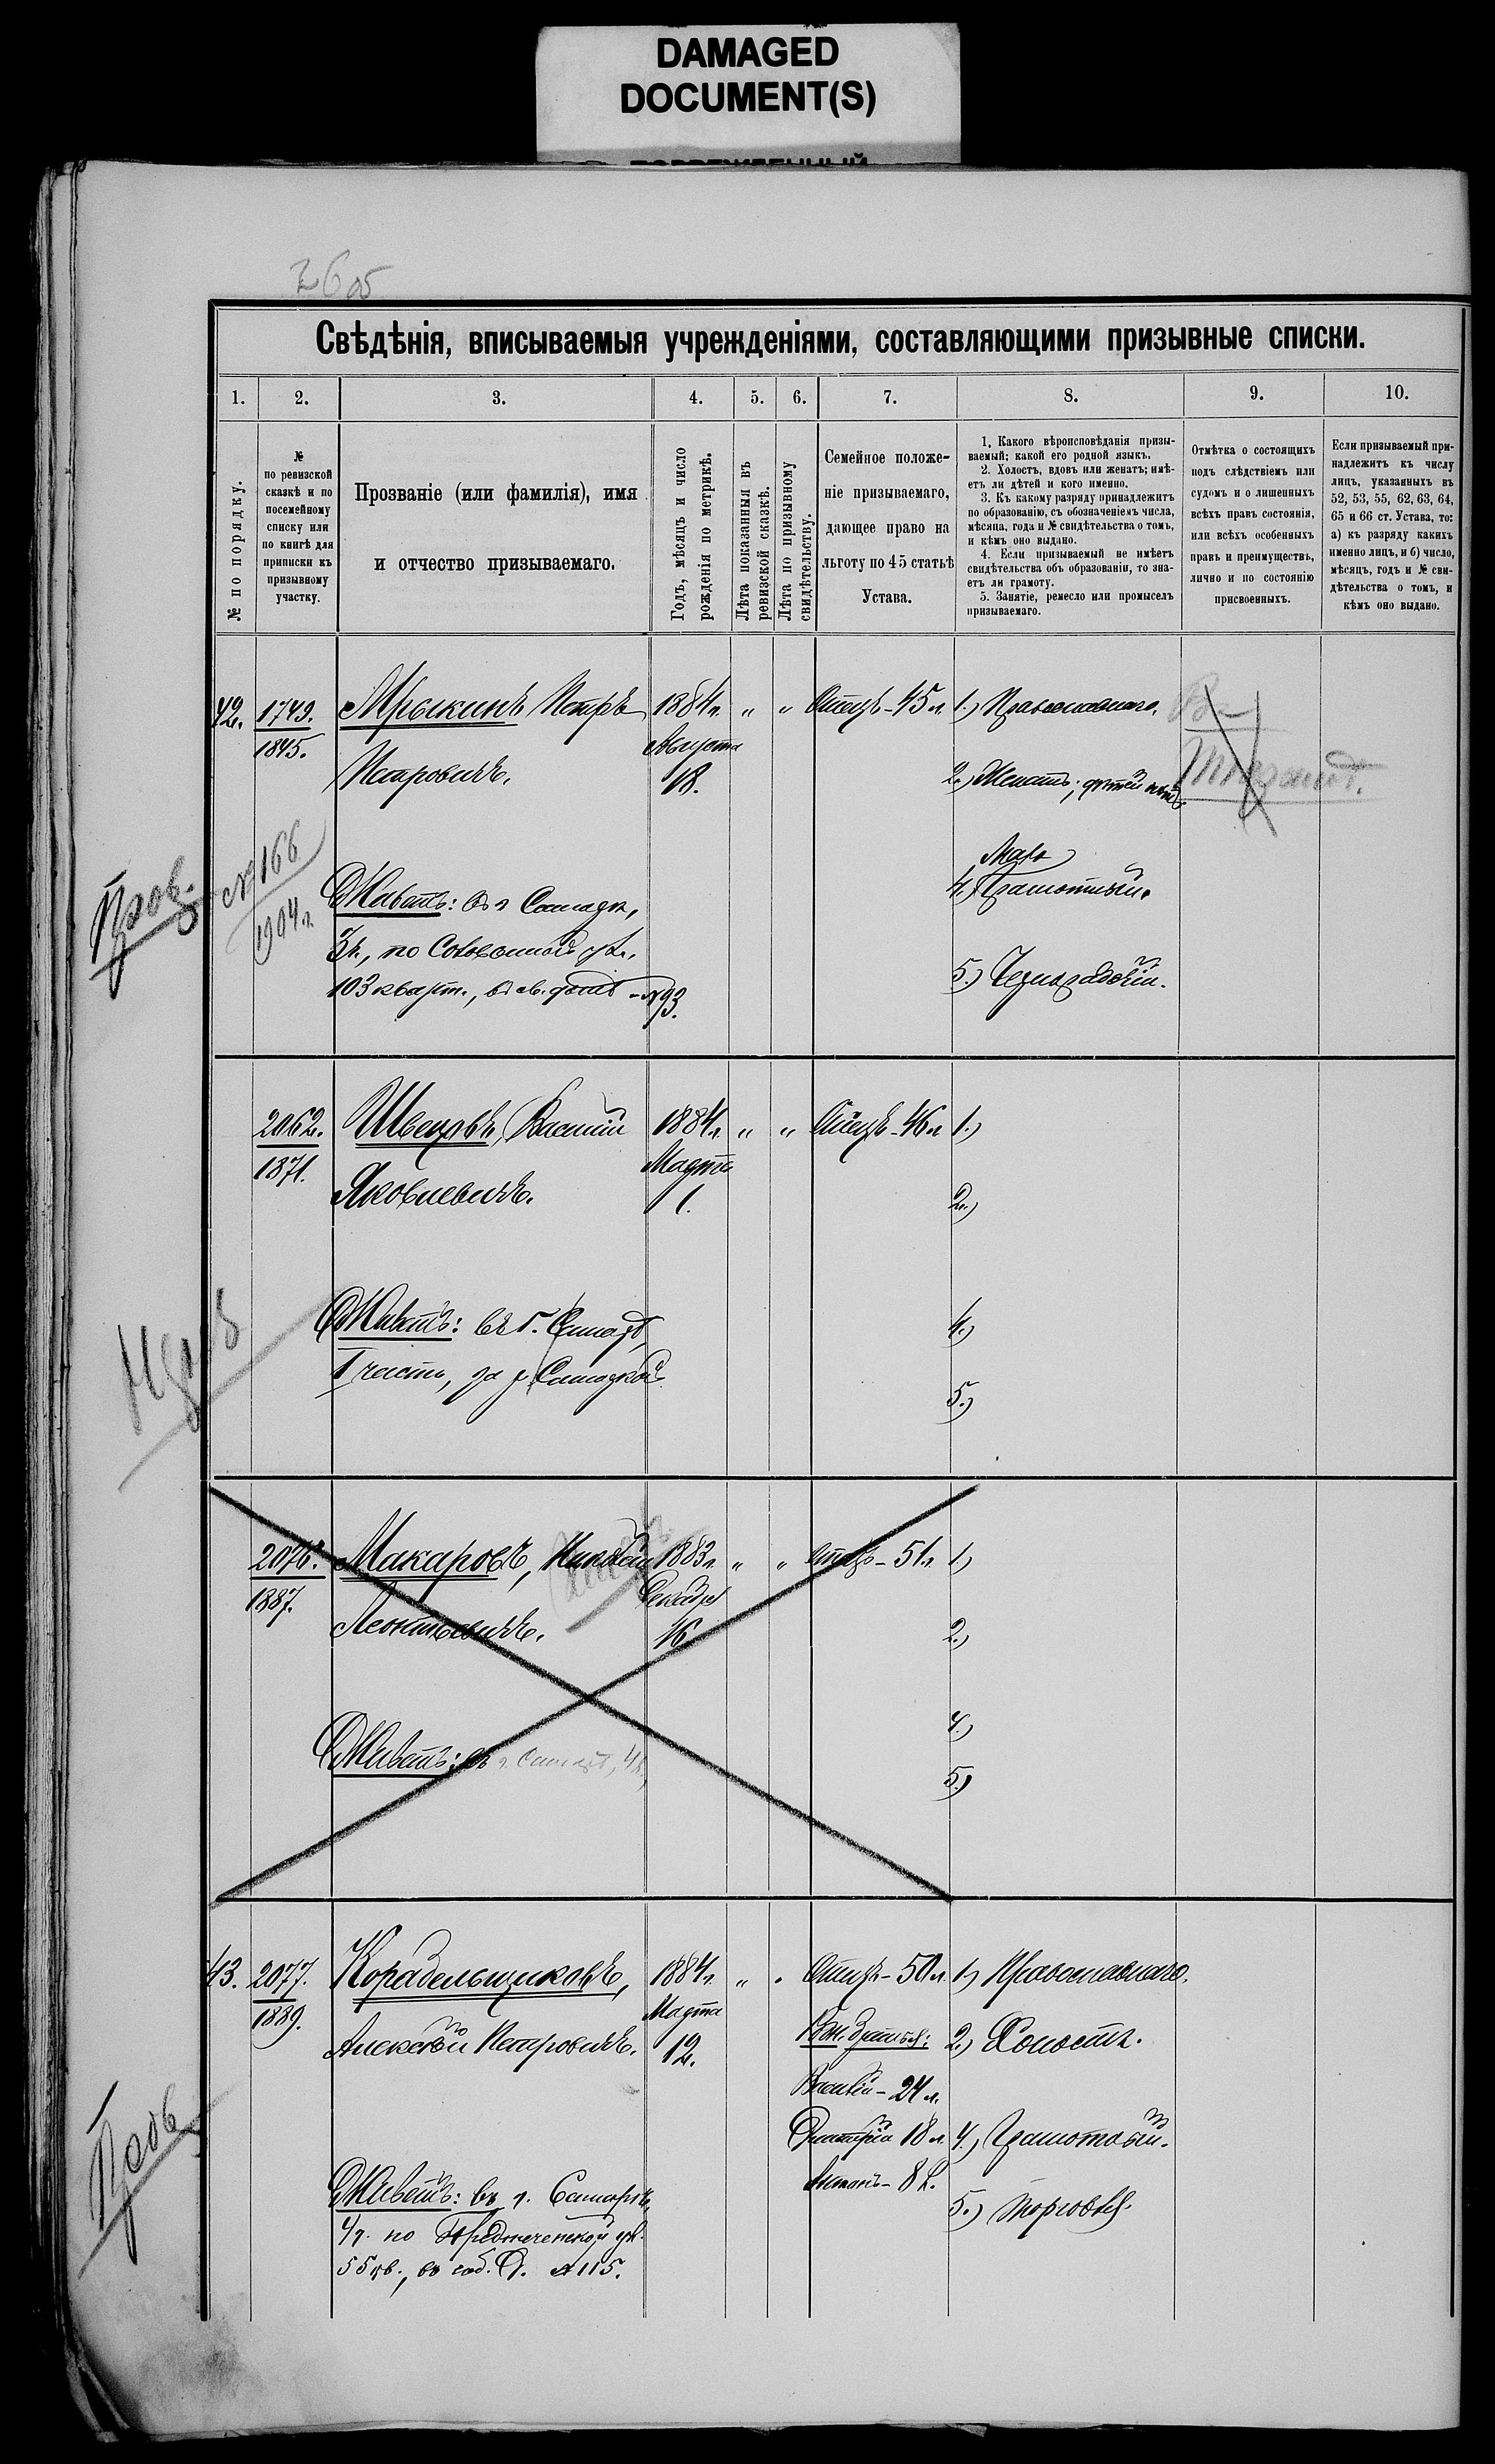 DAMAGED
DOCUMENT(S)
Свѣдѣнія, вписываемыя учрежденіями, составляющими призывные списки.
1. 2. 3. 4. 5. 6. 7. 8. 9. 10.
№ по порядку.
№
по ревизской
сказкѣ и по
посемейному
списку или
по книгѣ для
приписки къ
призывному
участку.
Прозваніе (или фамилія), имя
и отчество призываемаго.
Годъ, мѣсяцъ и число
рожденія по метрикѣ.
Лѣта показанныя въ
ревизской сказкѣ.
Лѣта по призывному
свидѣтельству.
Семейное положе-
ніе призываемаго,
дающее право на
льготу по 45 статьѣ
Устава.
1. Какого вѣроисповѣданія призы-
ваемый; какой его родной языкъ.
2. Холостъ, вдовъ или женатъ; имѣ-
етъ ли дѣтей и кого именно.
3. Къ какому разряду принадлежитъ
по образованію, съ обозначеніемъ числа,
мѣсяца, года и № свидѣтельства о томъ,
и кѣмъ оно выдано.
4. Если призываемый не имѣетъ
свидѣтельства объ образованіи, то зна-
етъ ли грамоту.
5. Занятіе, ремесло или промыселъ
призываемаго.
Отмѣтка о состоящихъ
подъ слѣдствіемъ или
судомъ и о лишенныхъ
всѣхъ правъ состоянія,
или всѣхъ особенныхъ
правъ и преимуществъ,
лично и по состоянію
присвоенныхъ.
Если призываемый при-
надлежитъ къ числу
лицъ, указанныхъ въ
52, 53, 55, 62, 63, 64,
65 и 66 ст. Устава, то:
а) къ разряду какихъ
именно лицъ, и б) число,
мѣсяцъ, годъ и № сви-
дѣтельства о томъ, и
кѣмъ оно выдано.
42. 1749. Мрыкинъ Петръ 1884 г. " " Отецъ - 45 л. 1.) Православнаго.
1845. Августа
Петровичъ. 18. 2.) Женатъ, дѣтей нѣтъ.
№ 166
1904 г.
Мало
4.) Грамотный.
Живетъ: въ г. Самарѣ,
3 ч., по Соловьиной ул.
103 кварт., въ св. домѣ - № 93.
5.) Чернорабочій.
2062. Швецовъ, Василій 1884 г. " " Отецъ - 46 л. 1.)
1871. Марта
Яковлевичъ. 1. 2.)
Живетъ: въ г. Самарѣ, 4.)
I часть, за р. Самаркой 5.)
2076. Макаровъ, 1883 г. " " Отецъ - 51 л. 1.)
1887. Декабря
Леонтьевичъ. 16. 2.)
4.)
Живетъ: въ г. Самарѣ, 4 ч., 5.)
43. 2077. Корабельщиковъ, 1884 г. " " Отецъ - 50 л. 1.) Православнаго.
1889. Марта
Алексѣй Петровичъ. 12. 2.) Холостъ.
Василій - 24 л.
Дмитрій 18 л. 4.) Грамотный.
Антонъ - 8 л.
Живетъ: въ г. Самарѣ, 5.) торговля.
4 ч. по
55 кв., въ соб. д. № 115.